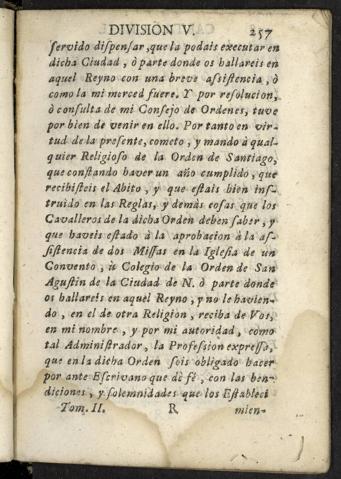 DIVISIÓN V. 257
servido dispensar, que la podais executar en
dicha Ciudad, ò parte donde os hallareis en
aquel Reyno con una breve assistencia, ò
como la mi merced fuere. Y por resolucion,
ò consulta de mi Consejo de Ordenes, tuve
por bien de venir en ello. Por tanto en vir-
tud de la presente, cometo, y mando à qual-
quier Religioso de la Orden de Santiago,
que constando haver un año cumplido, que
recibisteis el Abito, y que estais bien ins-
truido en las Reglas, y demás cosas que los
Cavalleros de la dicha Orden deben saber, y
que haveis estado à la aprobacion à la as-
sistencia de dos Missas en la Iglesia de un
Convento, ù Colegio de la Orden de San
Agustin de la Ciudad de N. ò parte donde
os hallareis en aquel Reyno, y no le havien-
do, en el de otra Religion, reciba de Vos,
en mi nombre, y por mi autoridad, como
tal Administrador, la Profession expressa,
que en la dicha Orden sois obligado hacer
por ante Escrivano que dè fé, con las ben-
diciones, y solemnidades que los Estableci
Tom. II. R mien-